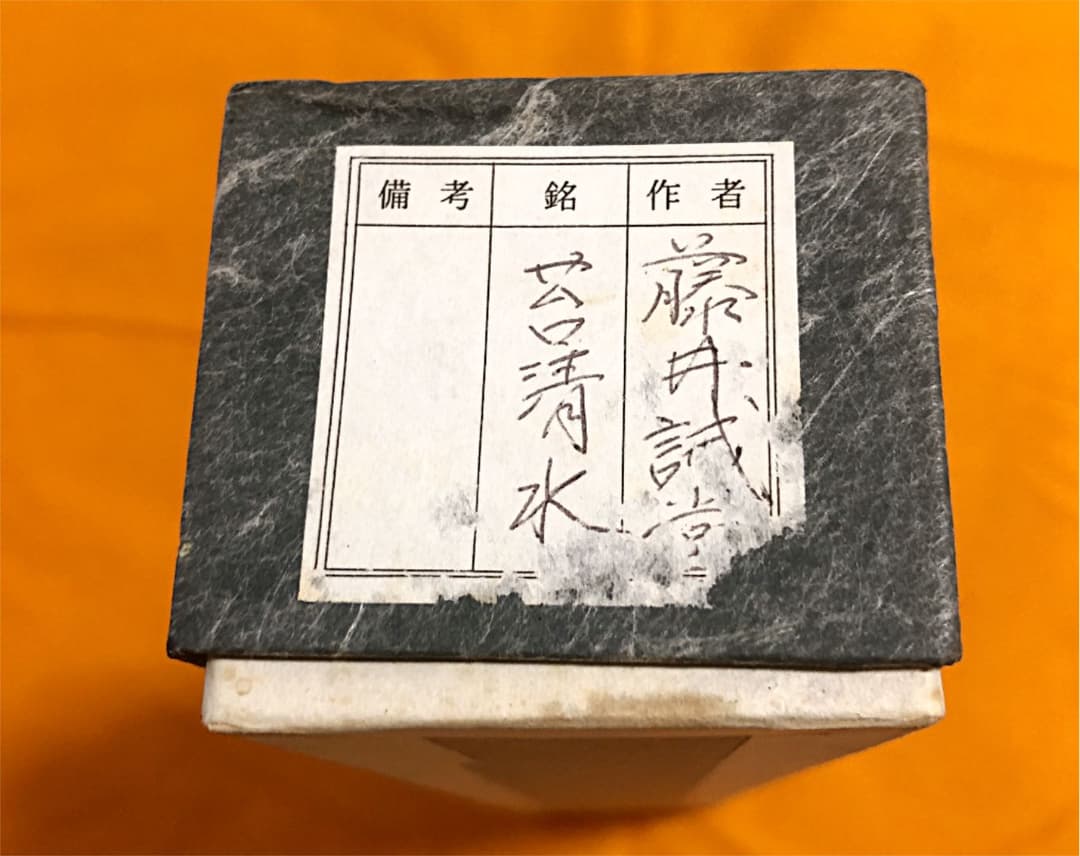 作者
藤井誡堂
銘
苔清水
備考